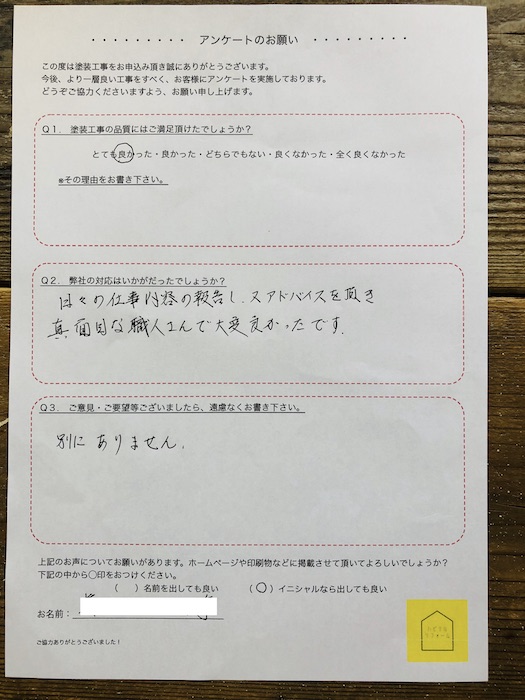 ・・・・・・・・・ アンケートのお願い ・・・・・・・・・
この度は塗装工事をお申込み頂き誠にありがとうございます。
今後、より一層良い工事をすべく、お客様にアンケートを実施しております。
どうぞご協力くださいますよう、お願い申し上げます。
Q1． 塗装工事の品質にはご満足頂けたでしょうか？
とても良かった・良かった・どちらでもない・良くなかった・全く良くなかった
※その理由をお書き下さい。
Q2． 弊社の対応はいかがだったでしょうか？
日々の仕事内容の報告し、又アドバイスを頂き
真面目な職人さんで大変良かったです.
Q3． ご意見・ご要望等ございましたら、遠慮なくお書き下さい。
別にありません.
上記のお声についてお願いがあります。ホームページや印刷物などに掲載させて頂いてよろしいでしょうか？
下記の中から○印をおつけください。
（ ）名前を出しても良い （○）イニシャルなら出しても良い
お名前：
ご協力ありがとうございました！
ハピクモ
リフォーム